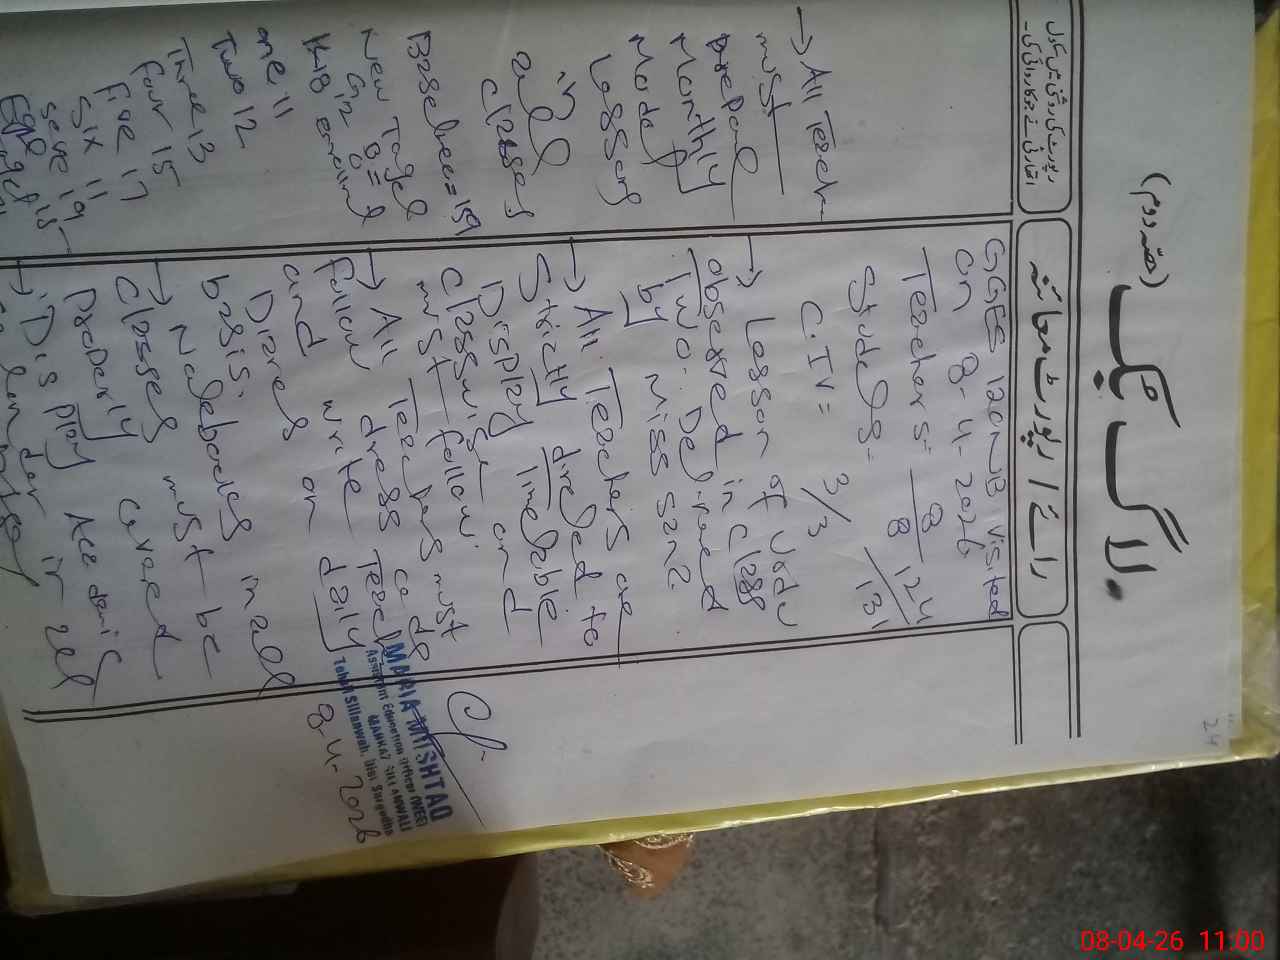 24
لاگ بک
(حصّہ دوم)
رپورٹ کی روشنی میں سکول
اتھارٹی نے جو کاروائی کی۔
رائے / رپورٹ معائنہ
GGES 120 NB visited
on 8-4-2026
Teachers = 8/8
Students = 124/131
C.IV = 3/3
→ Lesson of Urdu
observed in class
Two.
by Miss
→ All Teachers are
Strictly directed to
Display Timetable
Classwise and
must follow.
→ All Teachers must
follow dress code
and write Teach
Diaries on daily
basis.
→ Notebooks in all
Classes must be
Properly Covered
→ Display Academic
Calendar in all
→ All Teach
must
Prepare
Monthly
Model
Lessons
in
all
classes
Baseline = 159
New Target
G12 0 =
K18 enrolment
one 11
Two 12
Three 13
four 15
Five 17
Six 11
seven 19
15
MARIA MUSHTAQ
Assistant Education Officer (WEE)
MARKAZ SILLANWALI
Tehsil Sillanwali, Dist Sargodha
8-4-2026
08-04-26 11:00